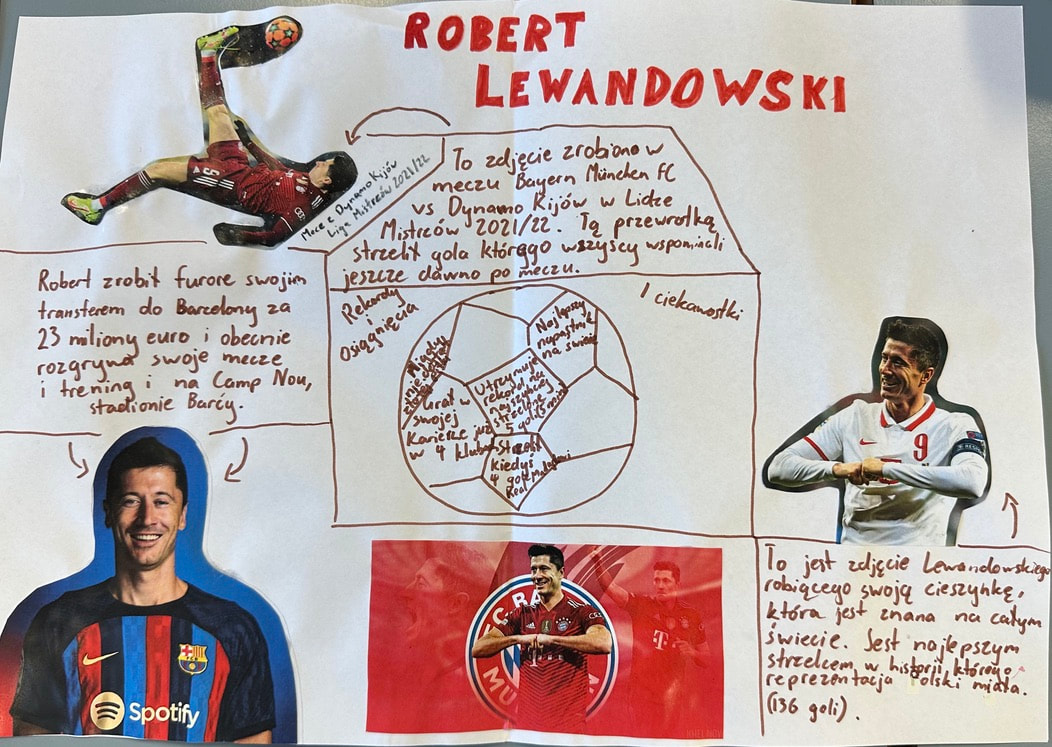 ROBERT
LEWANDOWSKI
Mecz z Dynamo Kijów
Liga Mistrzów 2021/22
To zdjęcie zrobiono w
meczu Bayern München FC
vs Dynamo Kijów w Lidze
Mistrzów 2021/22. Tą przewrotką
strzelił gola którego wszyscy wspominali
jeszcze dawno po meczu.
Robert zrobił furore swoim
transferem do Barcelony za
23 miliony euro i obecnie
rozgrywa swoje mecze
i treningi na Camp Nou,
stadionie Barçy.
Rekordy
i
Osiągnięcia
I ciekawostki
Najlepszy
napastnik
na świecie
Utrzymuje
rekord na
najszybciej
strzelone
5 goli
Grał w
swojej
Karierze już
w 4 klubach
Strzelił
kiedyś
4 gole
Real Madryt
9
RESPECT
To jest zdjęcie Lewandowskiego
robiącego swoją cieszynkę,
która jest znana na całym
świecie. Jest najlepszym
strzelcem w historii, którego
reprezentacja Polski miała.
(136 goli).
FCB
Spotify
FC BA
MÜ
T
T